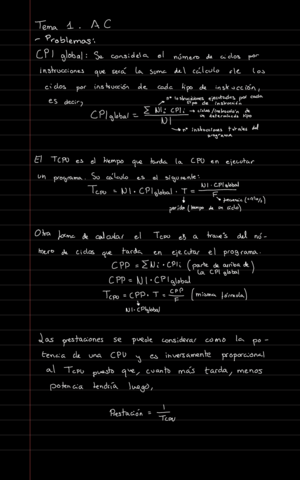 Tema 1. AC
- Problemas:
CPI global: Se considela el número de ciclos por
instrucciones que será la suma del cálculo de los
ciclos por instrucción de cada tipo de instrucción,
es decir,
nº instrucciones ejecutadas por cada
tipo de instrucción
CPI global = ΣNi·CPIi / NI
ciclos/instrucción de
un determinado tipo
nº instrucciones totales del
programa
El TCPU es el tiempo que tarda la CPU en ejecutar
un programa. Su cálculo es el siguiente:
TCPU = NI · CPI global · T = NI·CPI global / F
frecuencia (ciclos/s)
periodo (tiempo de un ciclo)
Otra forma de calcular el TCPU es a través del nú-
mero de ciclos que tarda en ejecutar el programa.
CPP = ΣNi · CPIi (parte de arriba de
la CPI global)
CPP = NI · CPI global
TCPU = CPP · T = CPP / F (misma fórmula)
NI·CPI global
Las prestaciones se puede considerar como la po-
tencia de una CPU y es inversamente proporcional
al TCPU puesto que, cuanto más tarda, menos
potencia tendría luego,
Prestación = 1 / TCPU